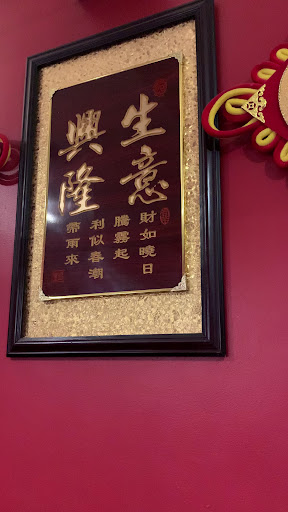 生意
興隆
財如曉日
騰霧起
利似春潮
帶雨來